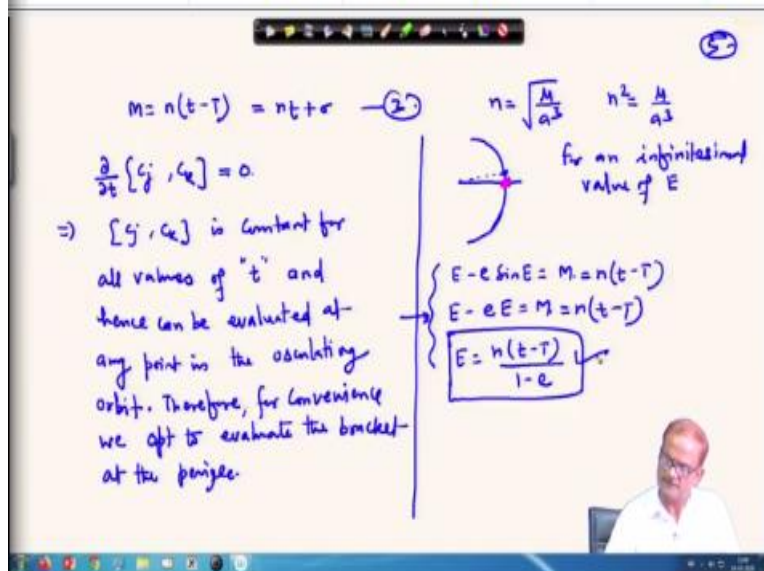 5.
M = n(t-T) = nt + σ —(2)
∂/∂t [cj, ck] = 0.
⇒ [cj, ck] is constant for
all values of "t" and
hence can be evaluated at
any point in the osculating
orbit. Therefore, for convenience
we opt to evaluate the bracket
at the perigee.
n = √(μ/a³) n² = μ/a³
for an infinitesimal
value of E
E - e sin E = M = n(t-T)
E - eE = M = n(t-T)
E = n(t-T)/(1-e)